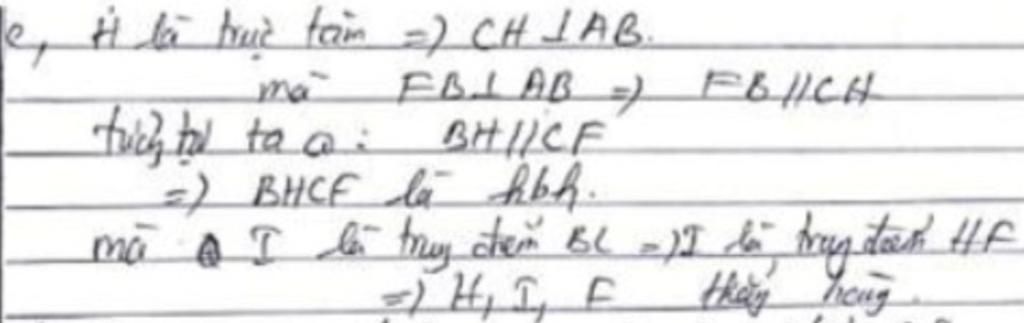 c, H là trực tâm => CH ⊥ AB.
mà FB ⊥ AB => FB // CH
tương tự ta có: BH // CF
=> BHCF là hbh.
mà I là trung điểm BC => I là trung điểm HF
=> H, I, F thẳng hàng.